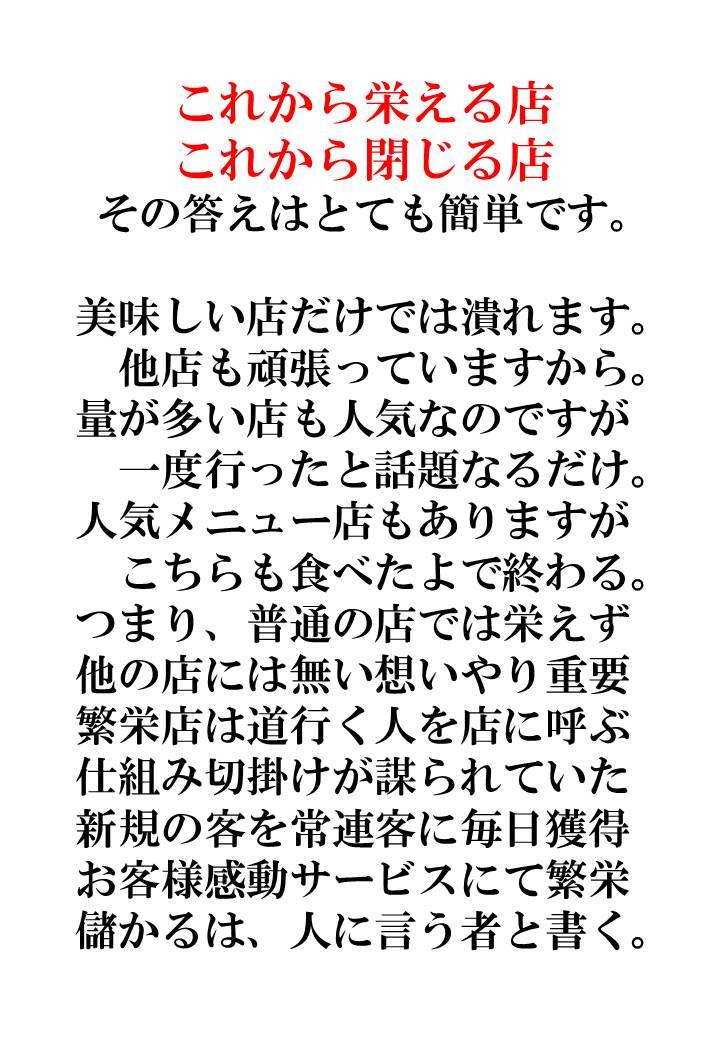 これから栄える店
これから閉じる店
その答えはとても簡単です。
美味しい店だけでは潰れます。
他店も頑張っていますから。
量が多い店も人気なのですが
一度行ったと話題なるだけ。
人気メニュー店もありますが
こちらも食べたよで終わる。
つまり、普通の店では栄えず
他の店には無い想いやり重要
繁栄店は道行く人を店に呼ぶ
仕組み切掛けが謀られていた
新規の客を常連客に毎日獲得
お客様感動サービスにて繁栄
儲かるは、人に言う者と書く。